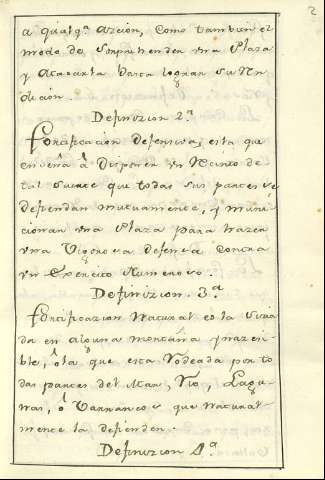 2
a qualqª. Accion, como tambien el
modo de sorprehender una Plaza
y Atacarla hasta lograr su Ren
dicion.
Definizion 2ª
Fortificacion Defensiva, es la que
enseña â Disponer un Recinto de
tal suerte que todas sus partes se
defiendan mutuamente, y muni
cionar una Plaza para hazer
una Vigorosa defensa contra
un Exercito Numeroso.
Definizion. 3.ª
Fortificazion Natural es la situa
da en alguna montaña
ô la que esta Rodeada por to
das partes del Mar, Rio, Lagu
nas, ô Barrancos que natural
mente la defienden.
Definizion 4ª